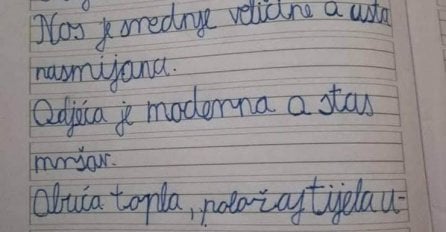 Nos je srednje veličine a usta
nasmijana.
Odjeća je moderna a stas
mršav.
Obuća topla, položaj tijela u-